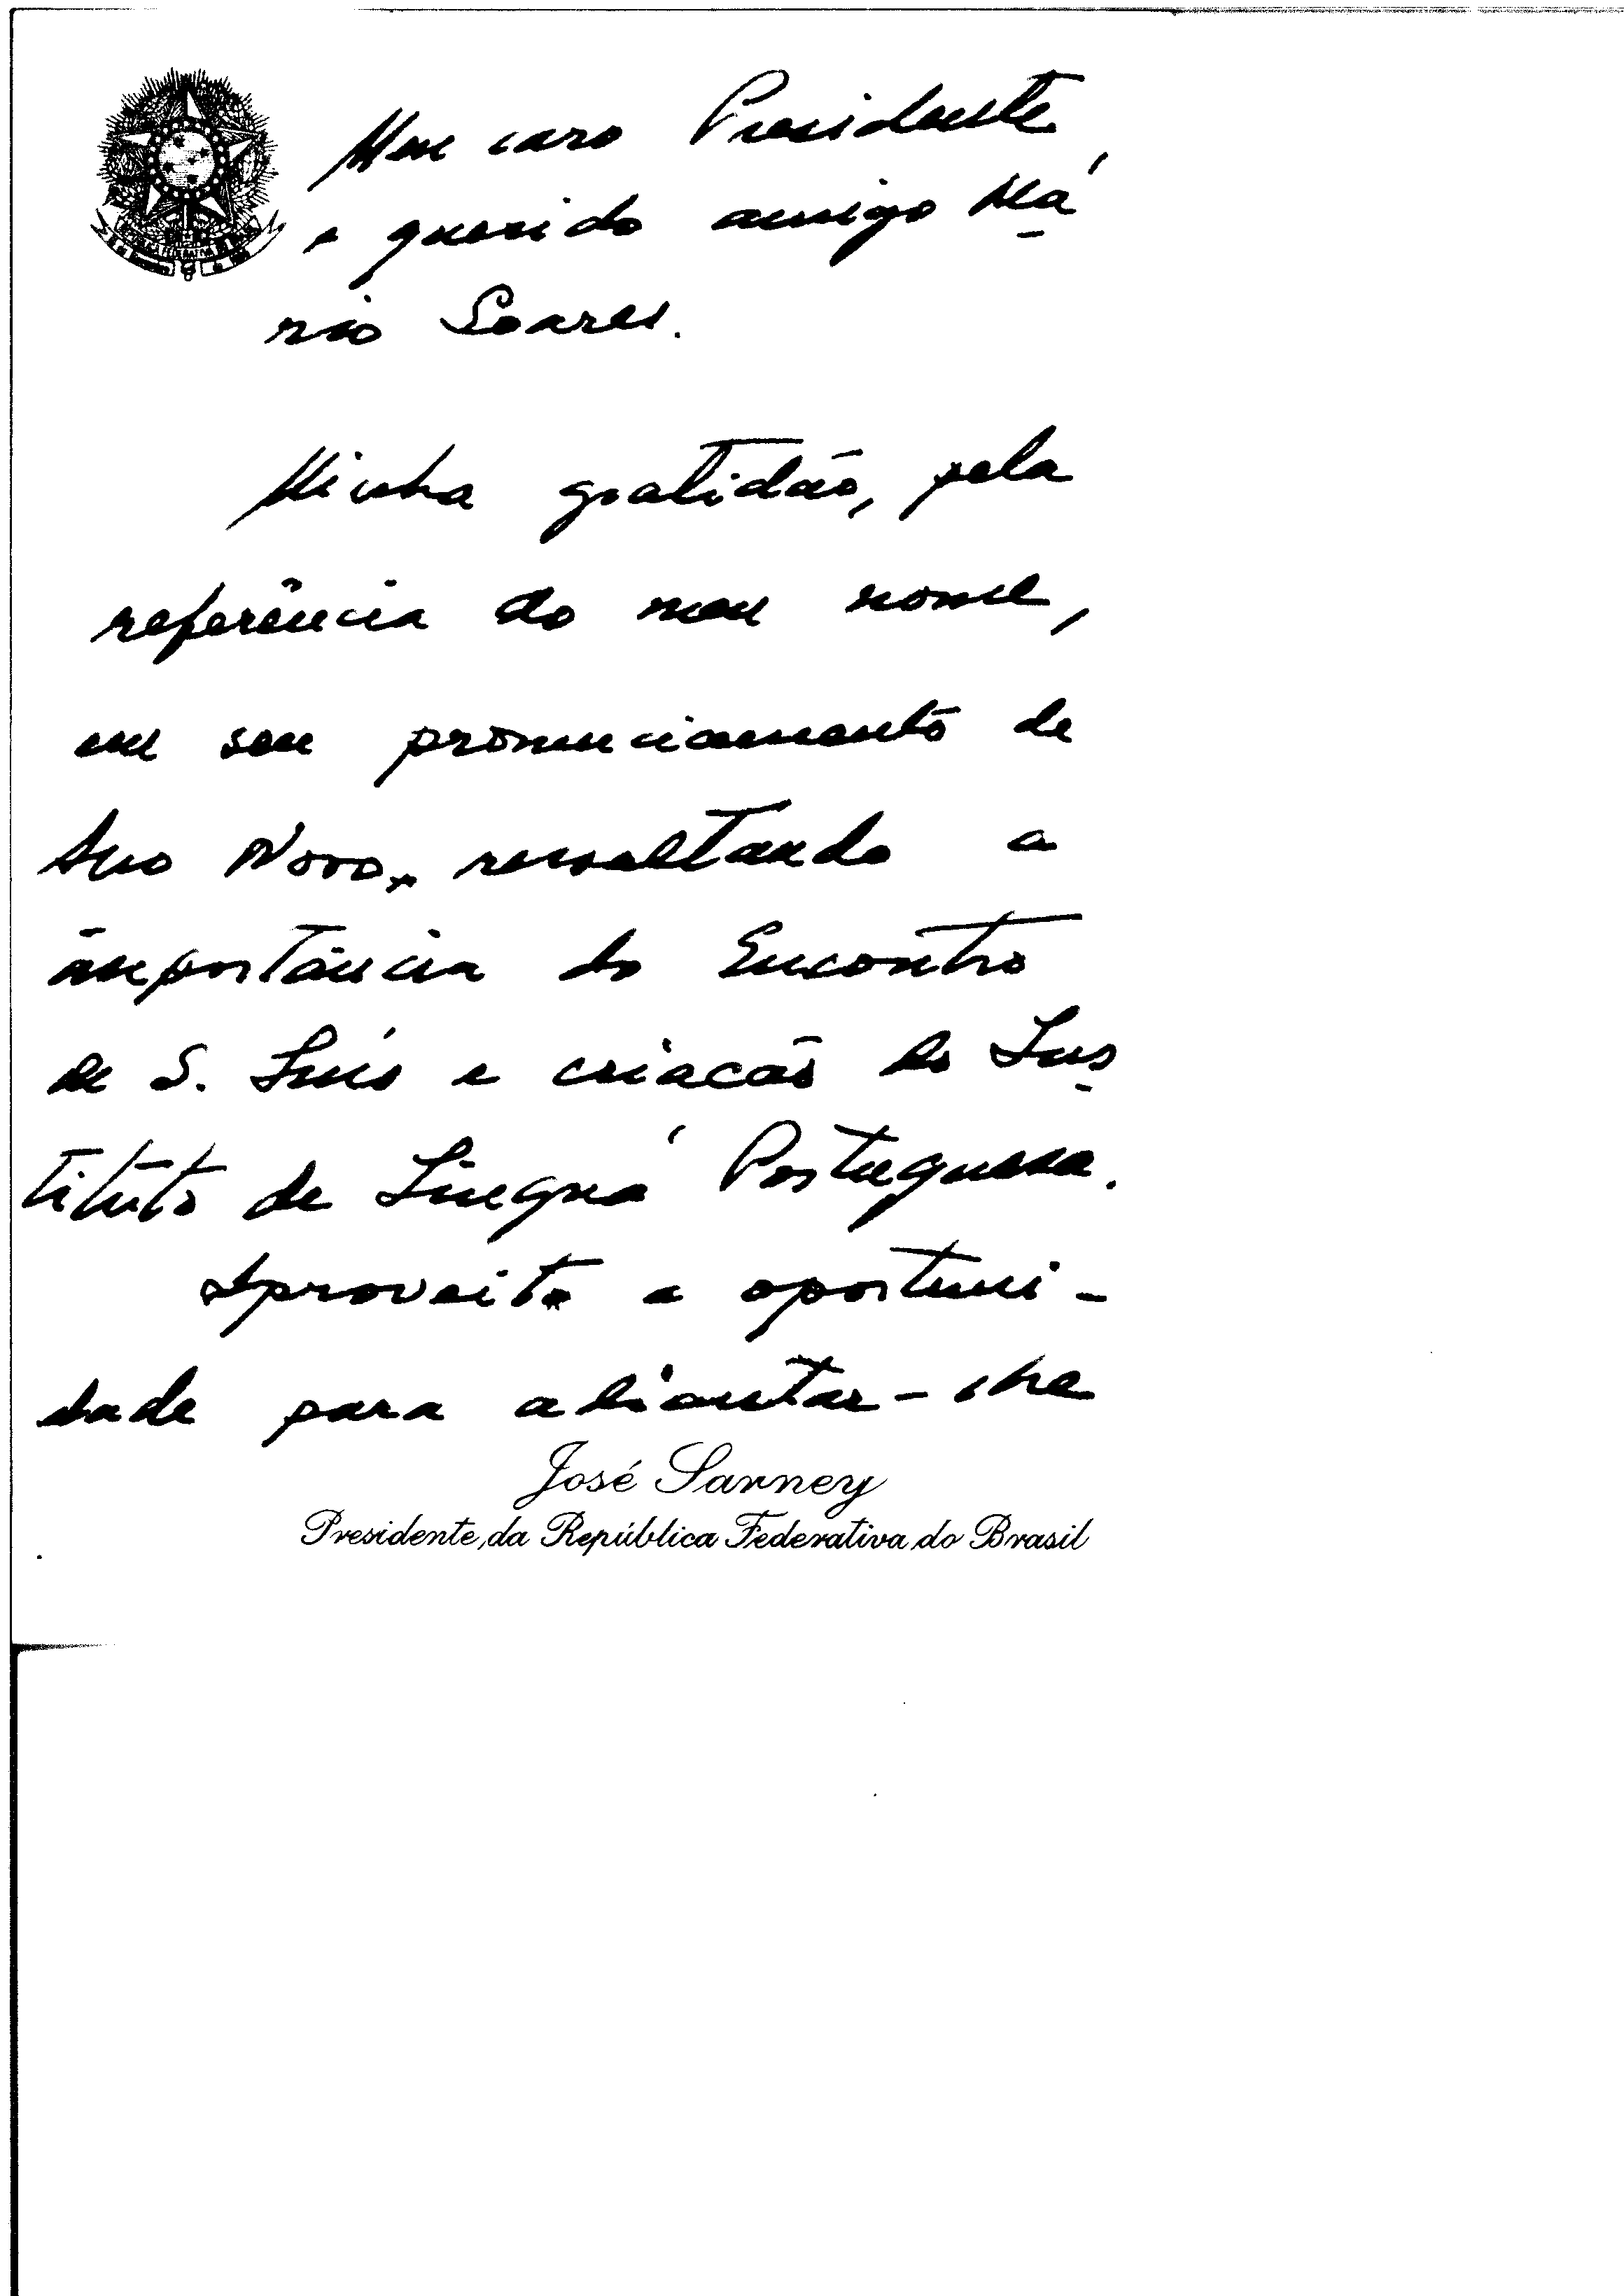 Meu caro Presidente,
e querido amigo Má
rio Soares.
Minha gratidão, pela
referência do meu nome,
em seu pronunciamento de
Ano Novo, ressaltando a
importância do Encontro
de S. Luís e criação do Ins
tituto de Língua Portuguesa.
Aproveito a oportuni-
dade para adiantar-lhe
José Sarney
Presidente da República Federativa do Brasil